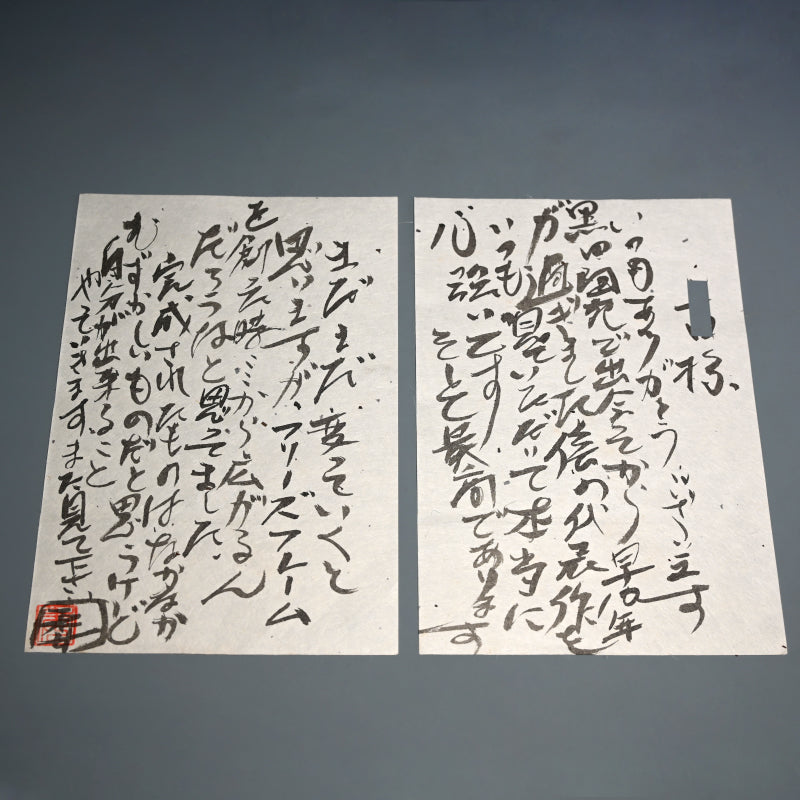 様
いつもありがとうございます
黒田陶苑で出会てから早10年
が過ぎました 僕の代表作を
いつも見ていただいて本当に
心強いです そして最高であります
まだまだ変っていくと
思いますが、フリーズフレーム
を創った時…から広がるん
だろうなと思ってました
完成されたものはなかなか
むずかしいものだと思うけど
自分が出来ること
やっていきます。また見て下さい